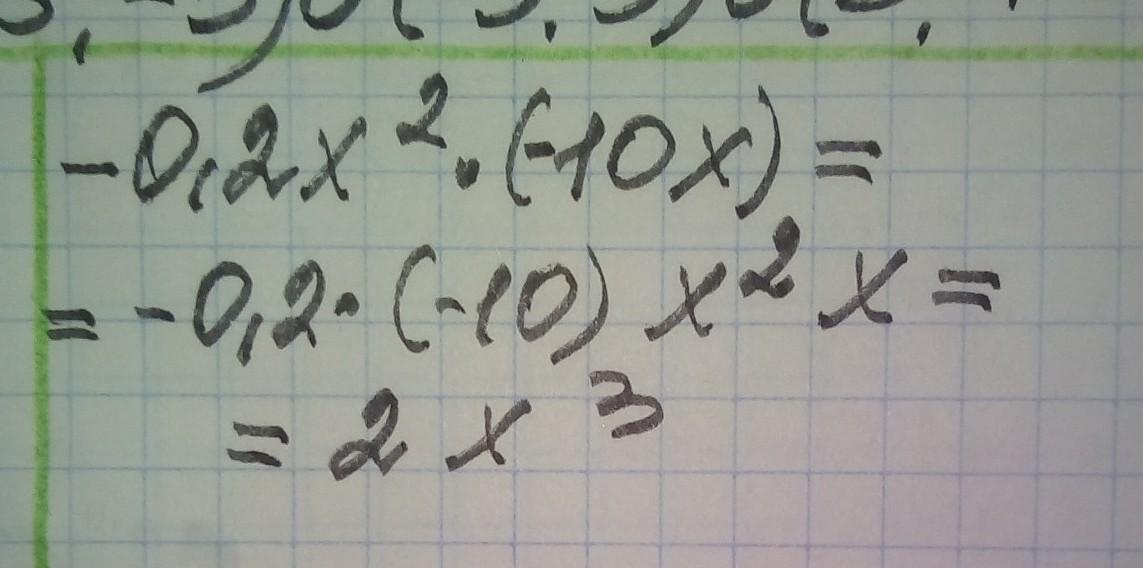 -0,2x²·(-10x)=
=-0,2·(-10)x²x=
=2x³